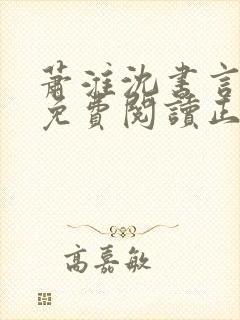 蕭淮沈書言
免費閱讀正
高嘉敏